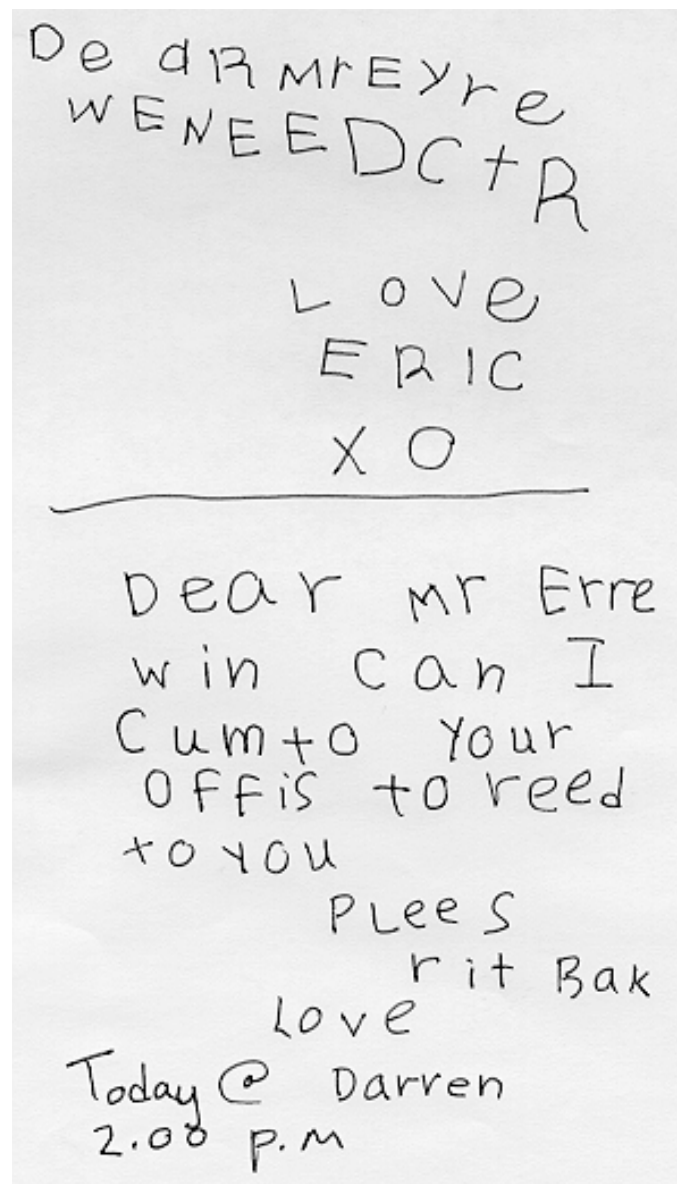 De aR mrEyre
WENEEDCtR
Love
ERIC
XO
Dear mr Erre
win can I
Cumto your
OFFis to reed
to you
PLees
rit Bak
Love
Today @ Darren
2.00 p.m